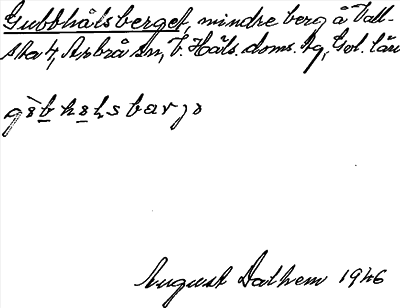 Gubbhålsberget, mindre berg å Vall-
sta 4, Arbrå sn, V. Häls. doms. hg, Gvl. län
August Dalhem 1946